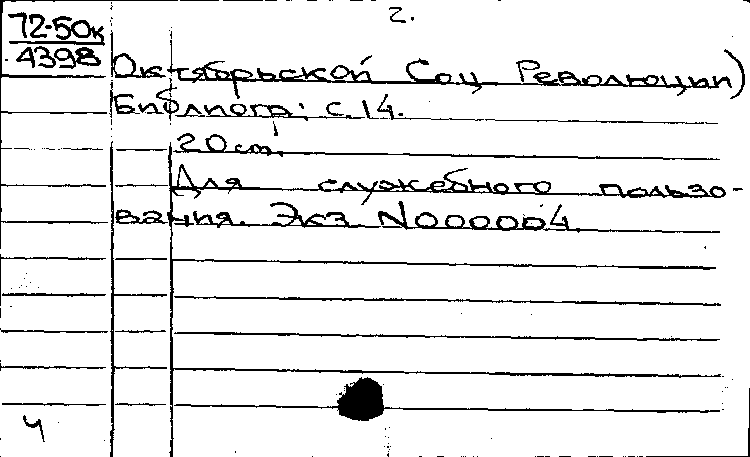 2.
72-50к
4398
Октябрьской Соц Революции)
Библиогр: с. 14.
20 см.
Для служебного пользо-
вания. Экз N000004.
4